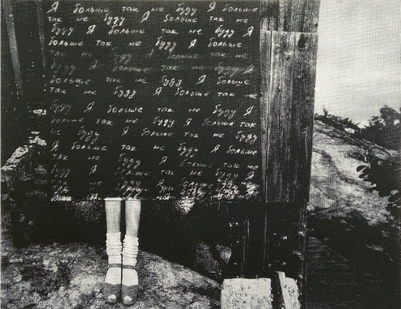 Я больше так не буду Я больше
так не буду Я больше так не
буду Я больше так не буду Я
больше так не буду Я больше
так не буду Я больше так не
буду Я больше так не буду Я
больше так не буду Я больше
так не буду Я больше так не
буду Я больше так не буду Я
больше так не буду Я больше
не буду Я больше так не буду
Я больше так не буду Я больше
так не буду Я больше так не
буду Я больше так не буду